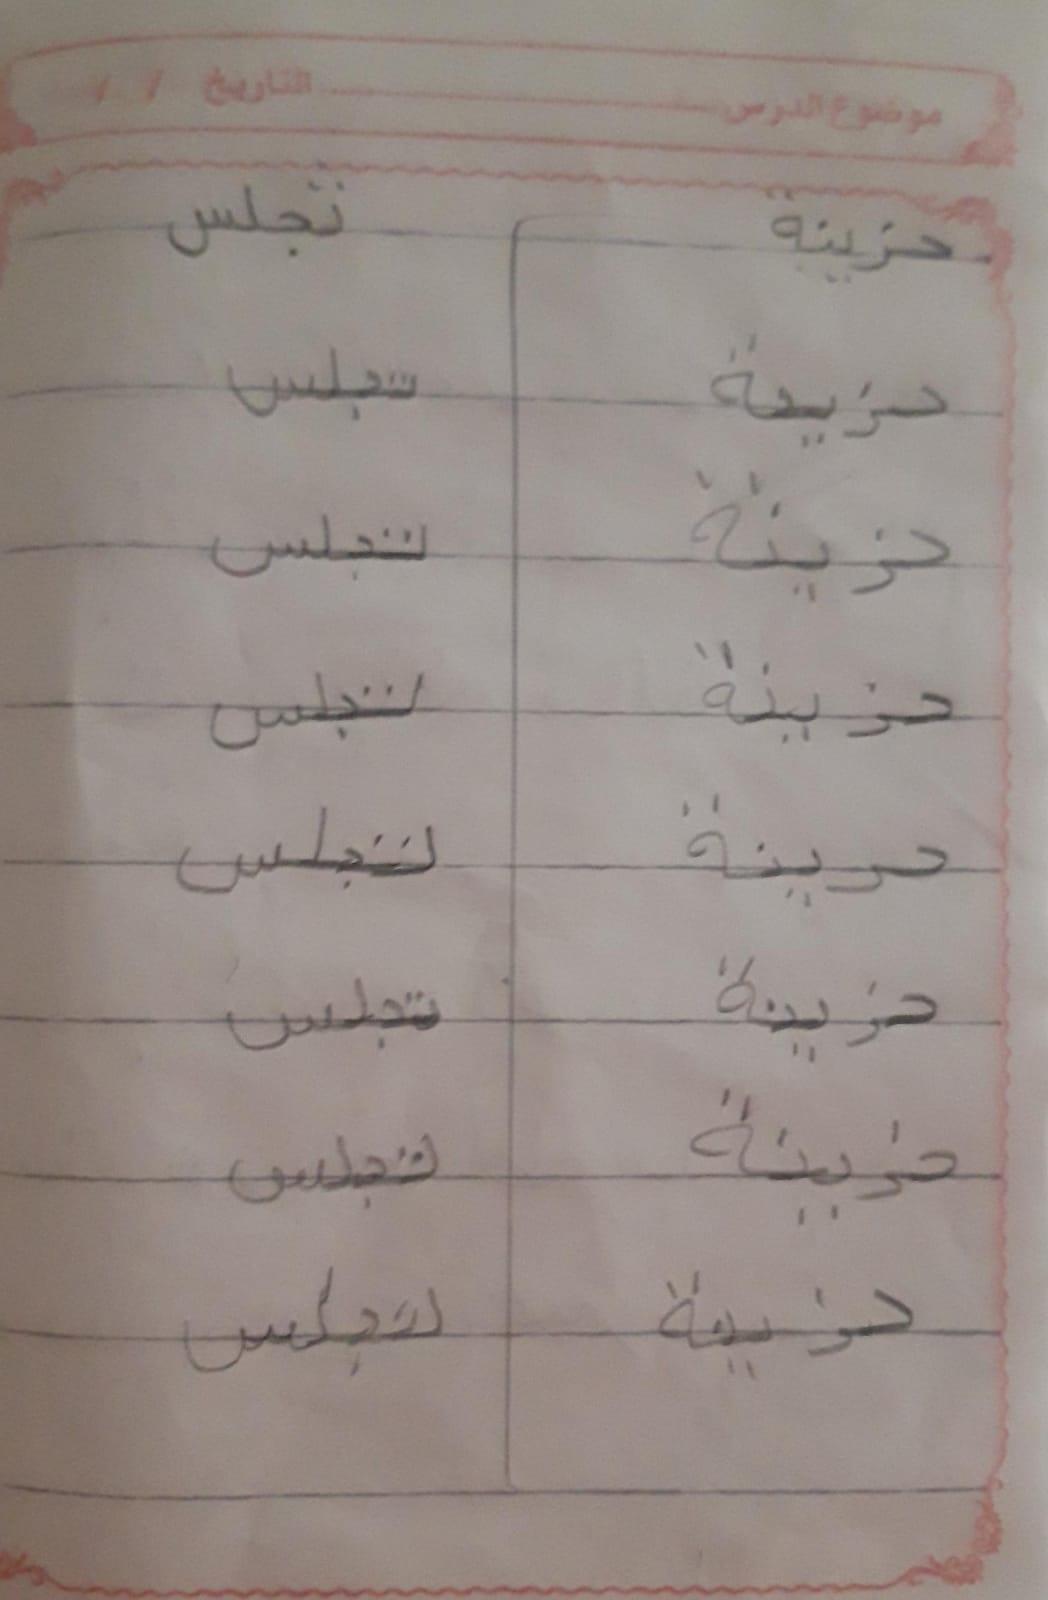 موضوع الدرس ............ التاريخ / /
حزينة تجلس
حزينة تجلس
حزينة تجلس
حزينة تجلس
حرينة تجلس
حزينة تجلس
حزينة تجلس
حزينة تجلس